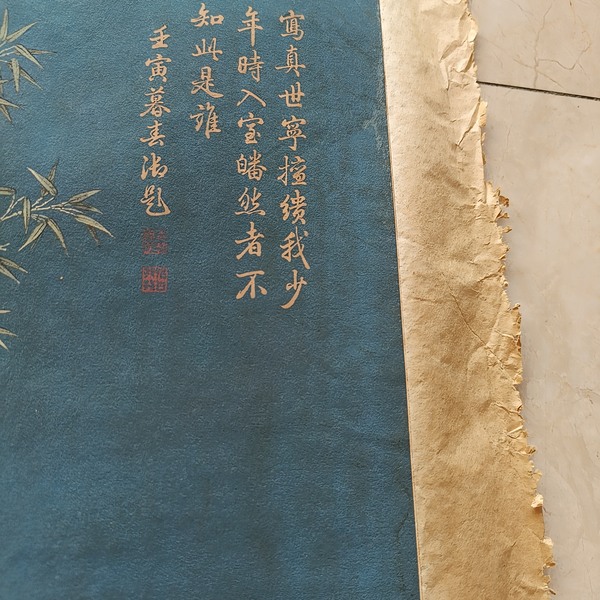 寫真世寧擅缋我少
年時入室皤然者不
知此是誰
壬寅暮春御题